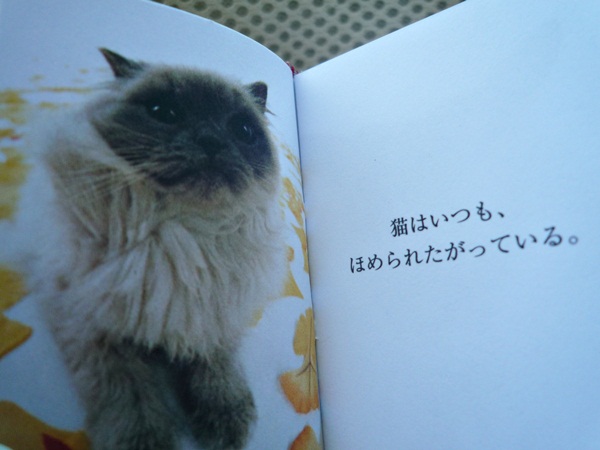 猫はいつも、
ほめられたがっている。